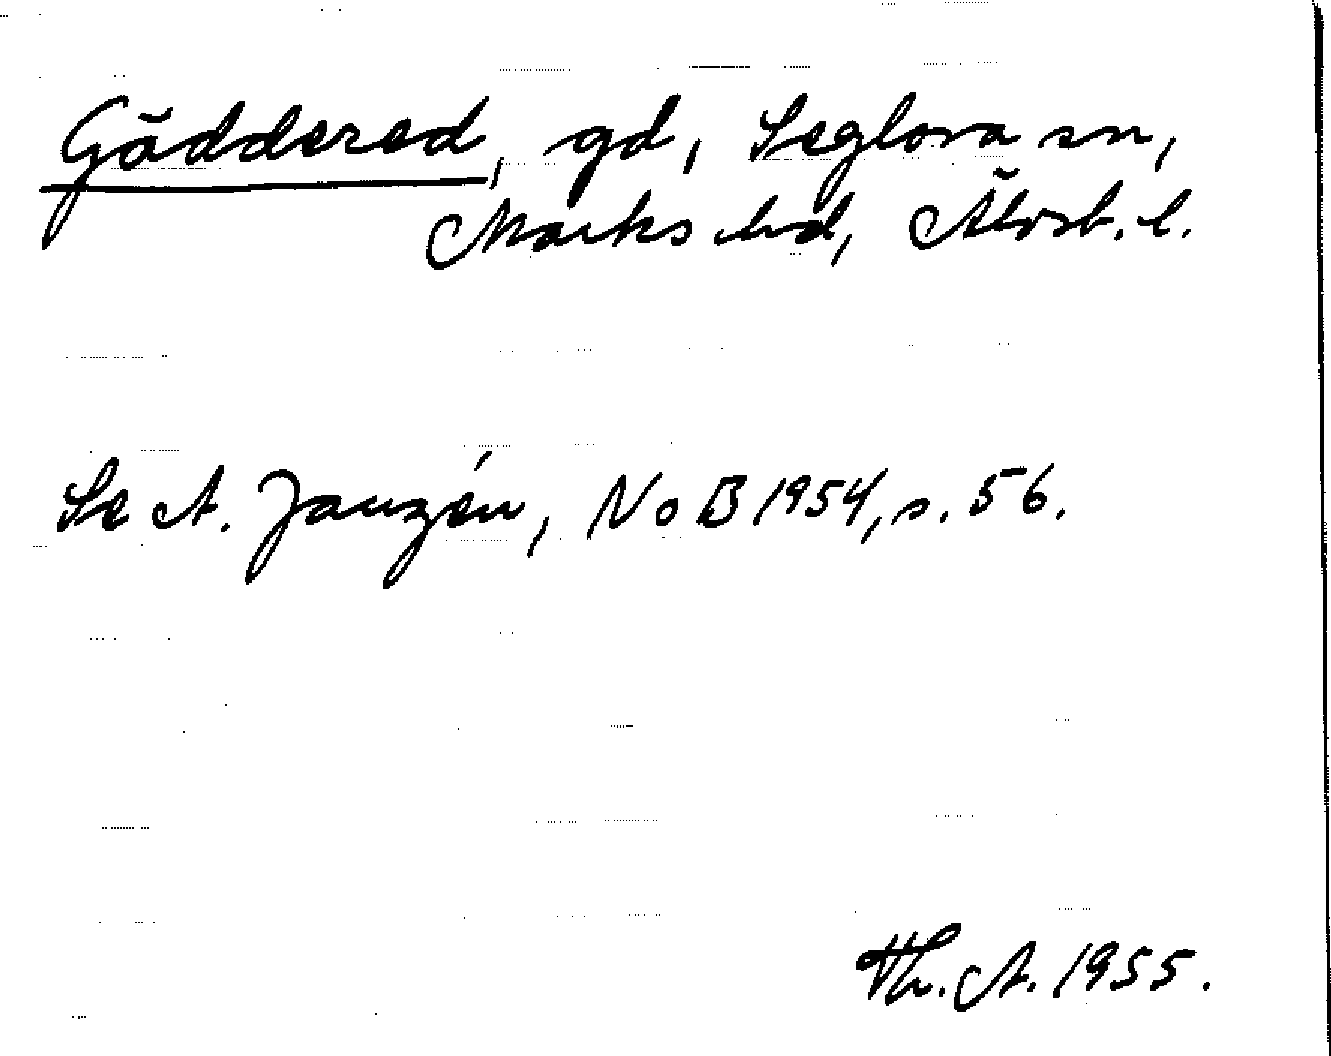 Gäddered, gd, Seglora sn,
Marks hd, Älvsb. l.
Se A. Janzén, NoB 1954, s. 56.
Th. A. 1955.